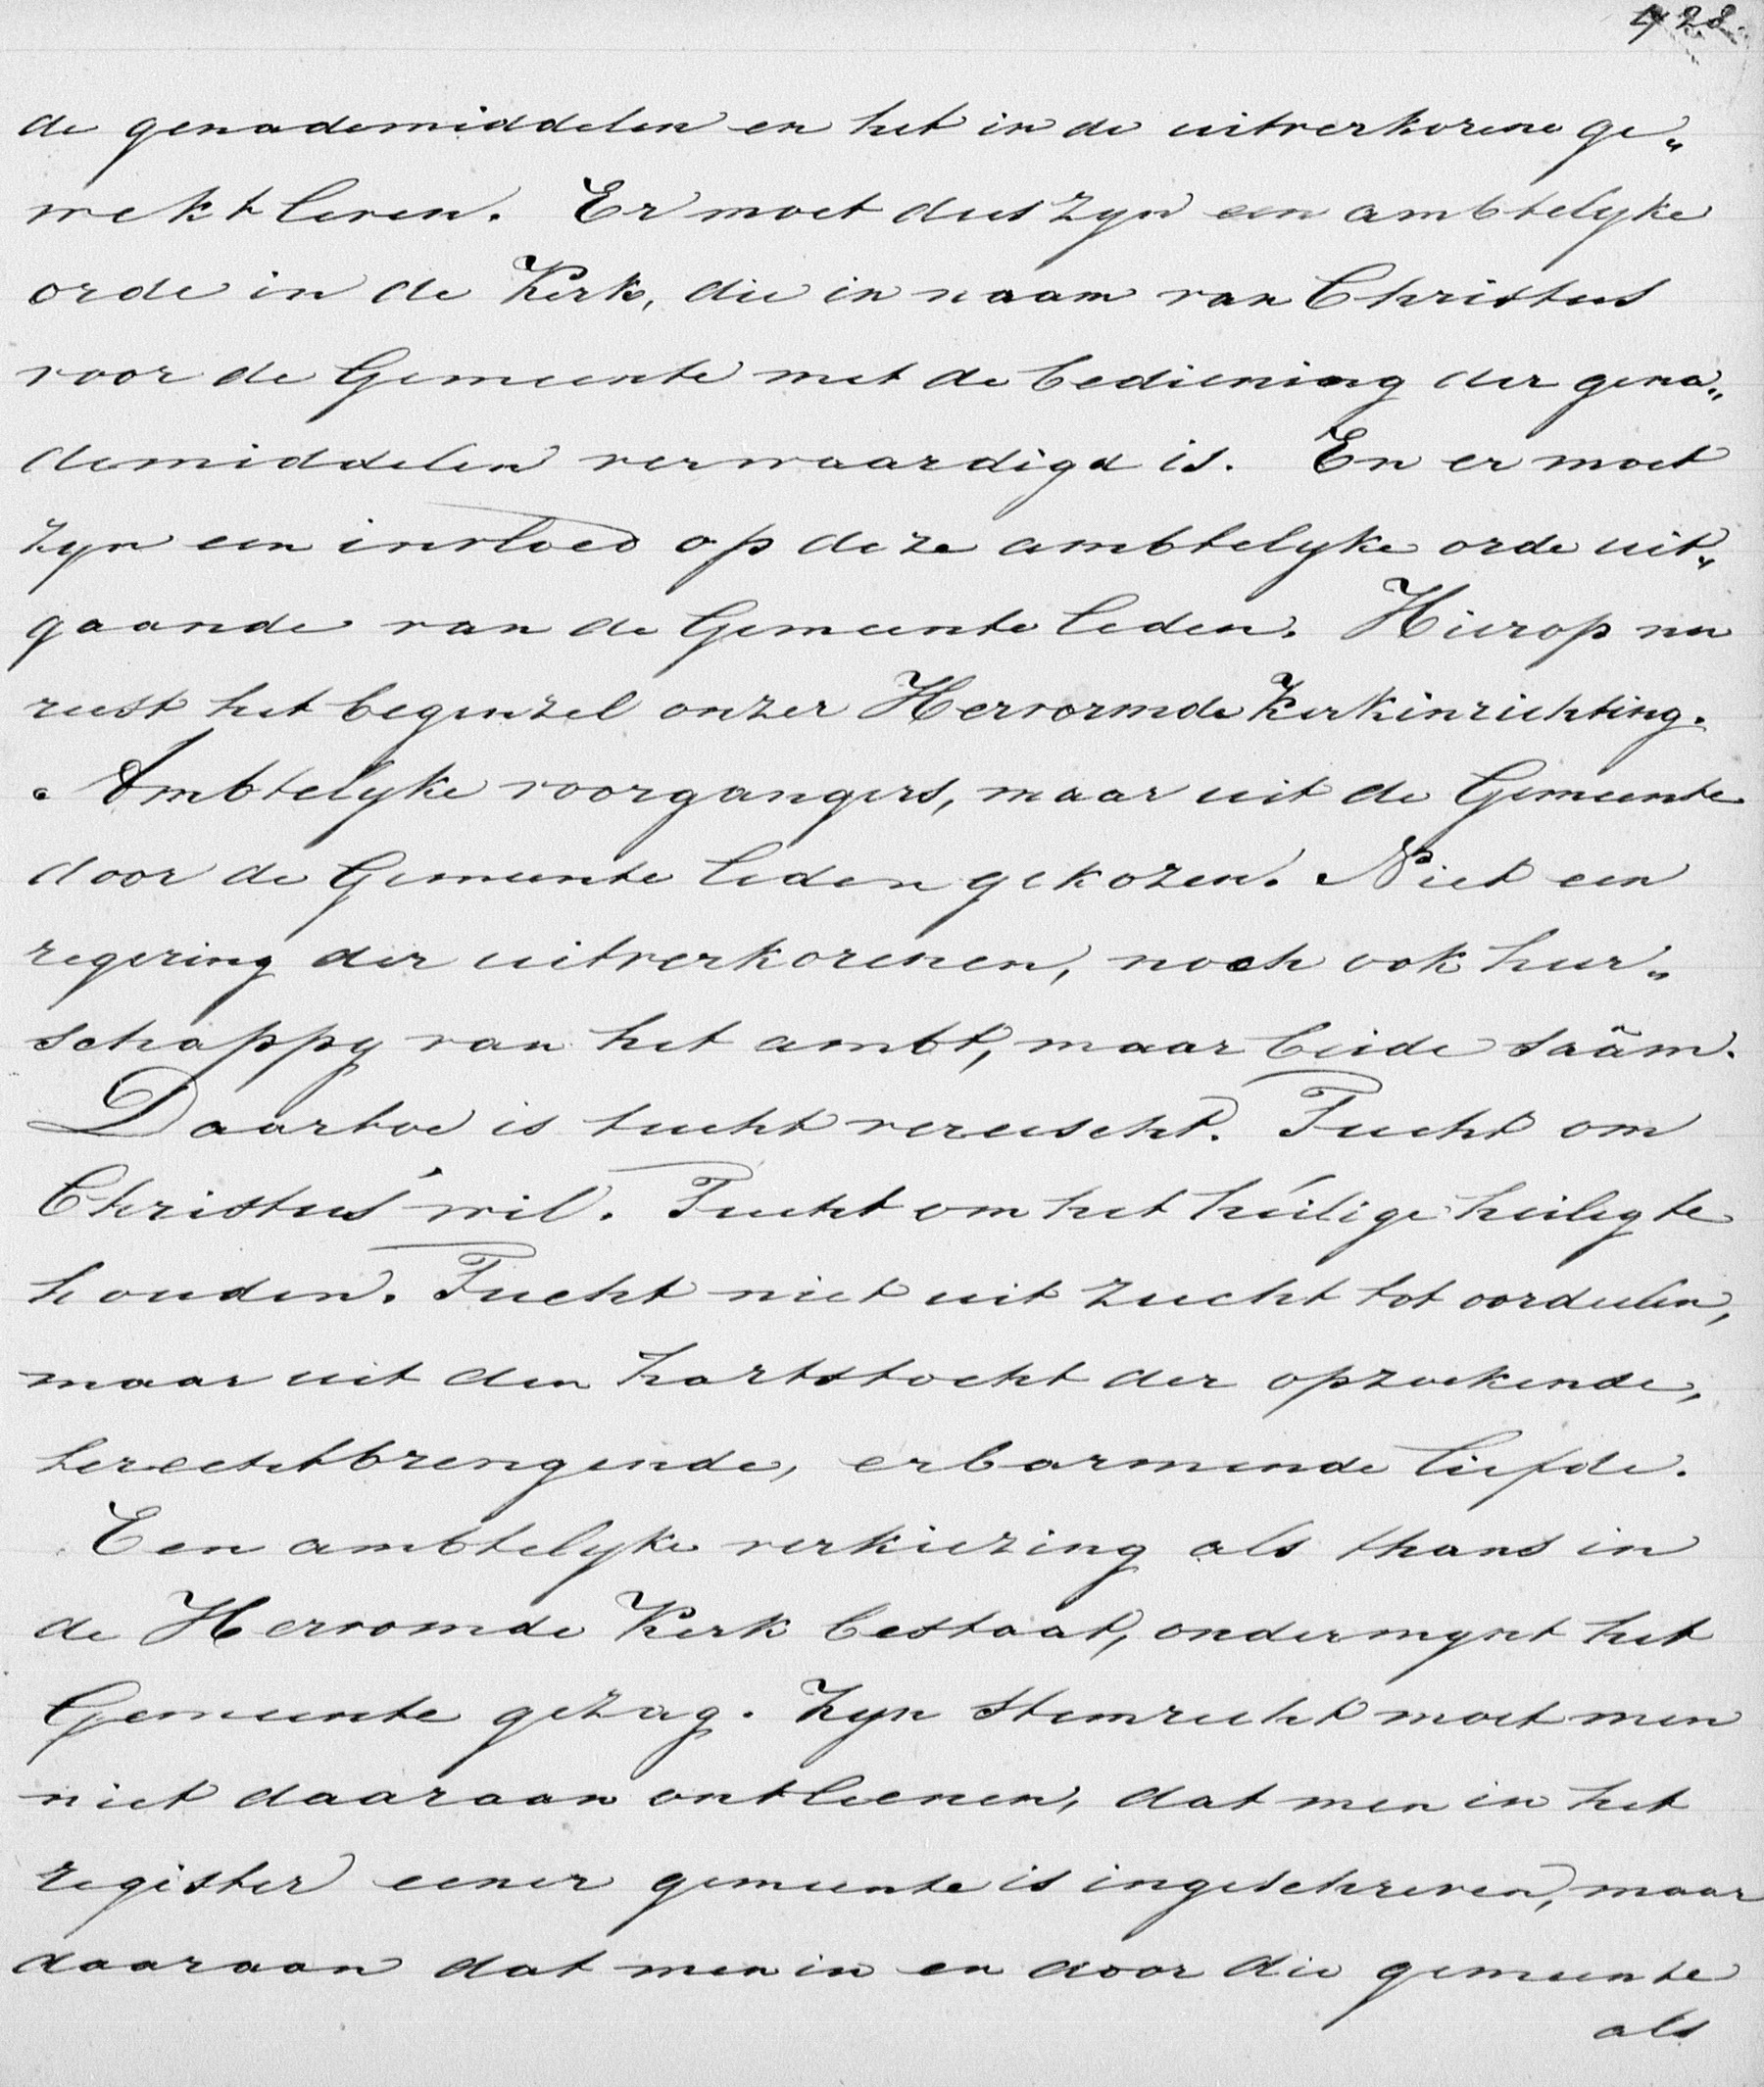 428.
de genademiddelen en het in de uitverkorene ge„
wekt leven. Er moet dus zyn een ambtelyke
orde in de Kerk, die in naam van Christus
voor de Gemeente met de bediening der gena„
demiddelen verwaardigd is. En er moet
zyn een invloed op deze ambtelyke orde uit„
gaande van de Gemeente leden. Hierop nu
rust het beginzel onzer Hervormde Kerkinrichting.
Ambtelyke voorgangers, maar uit de Gemeente
door de Gemeente leden gekozen. Niet een
regering der uitverkorenen, noch ook heer„
schappy van het ambt, maar beide saâm.
Daartoe is tucht vereischt. Tucht om
Christus' wil. Tucht om het heilige heilig te
houden. Tucht niet uit zucht tot oordeelen,
maar uit den hartstocht der opzoekende,
terechtbrengende, erbarmende liefde.
Een ambtelyke verkiezing als thans in
de Hervormde Kerk bestaat, ondermynt het
Gemeente gezag. Zyn stemrecht moet men
niet daaraan ontleenen, dat men in het
register eener gemeente is ingeschreven, maar
daaraan dat men in en door die gemeente
als